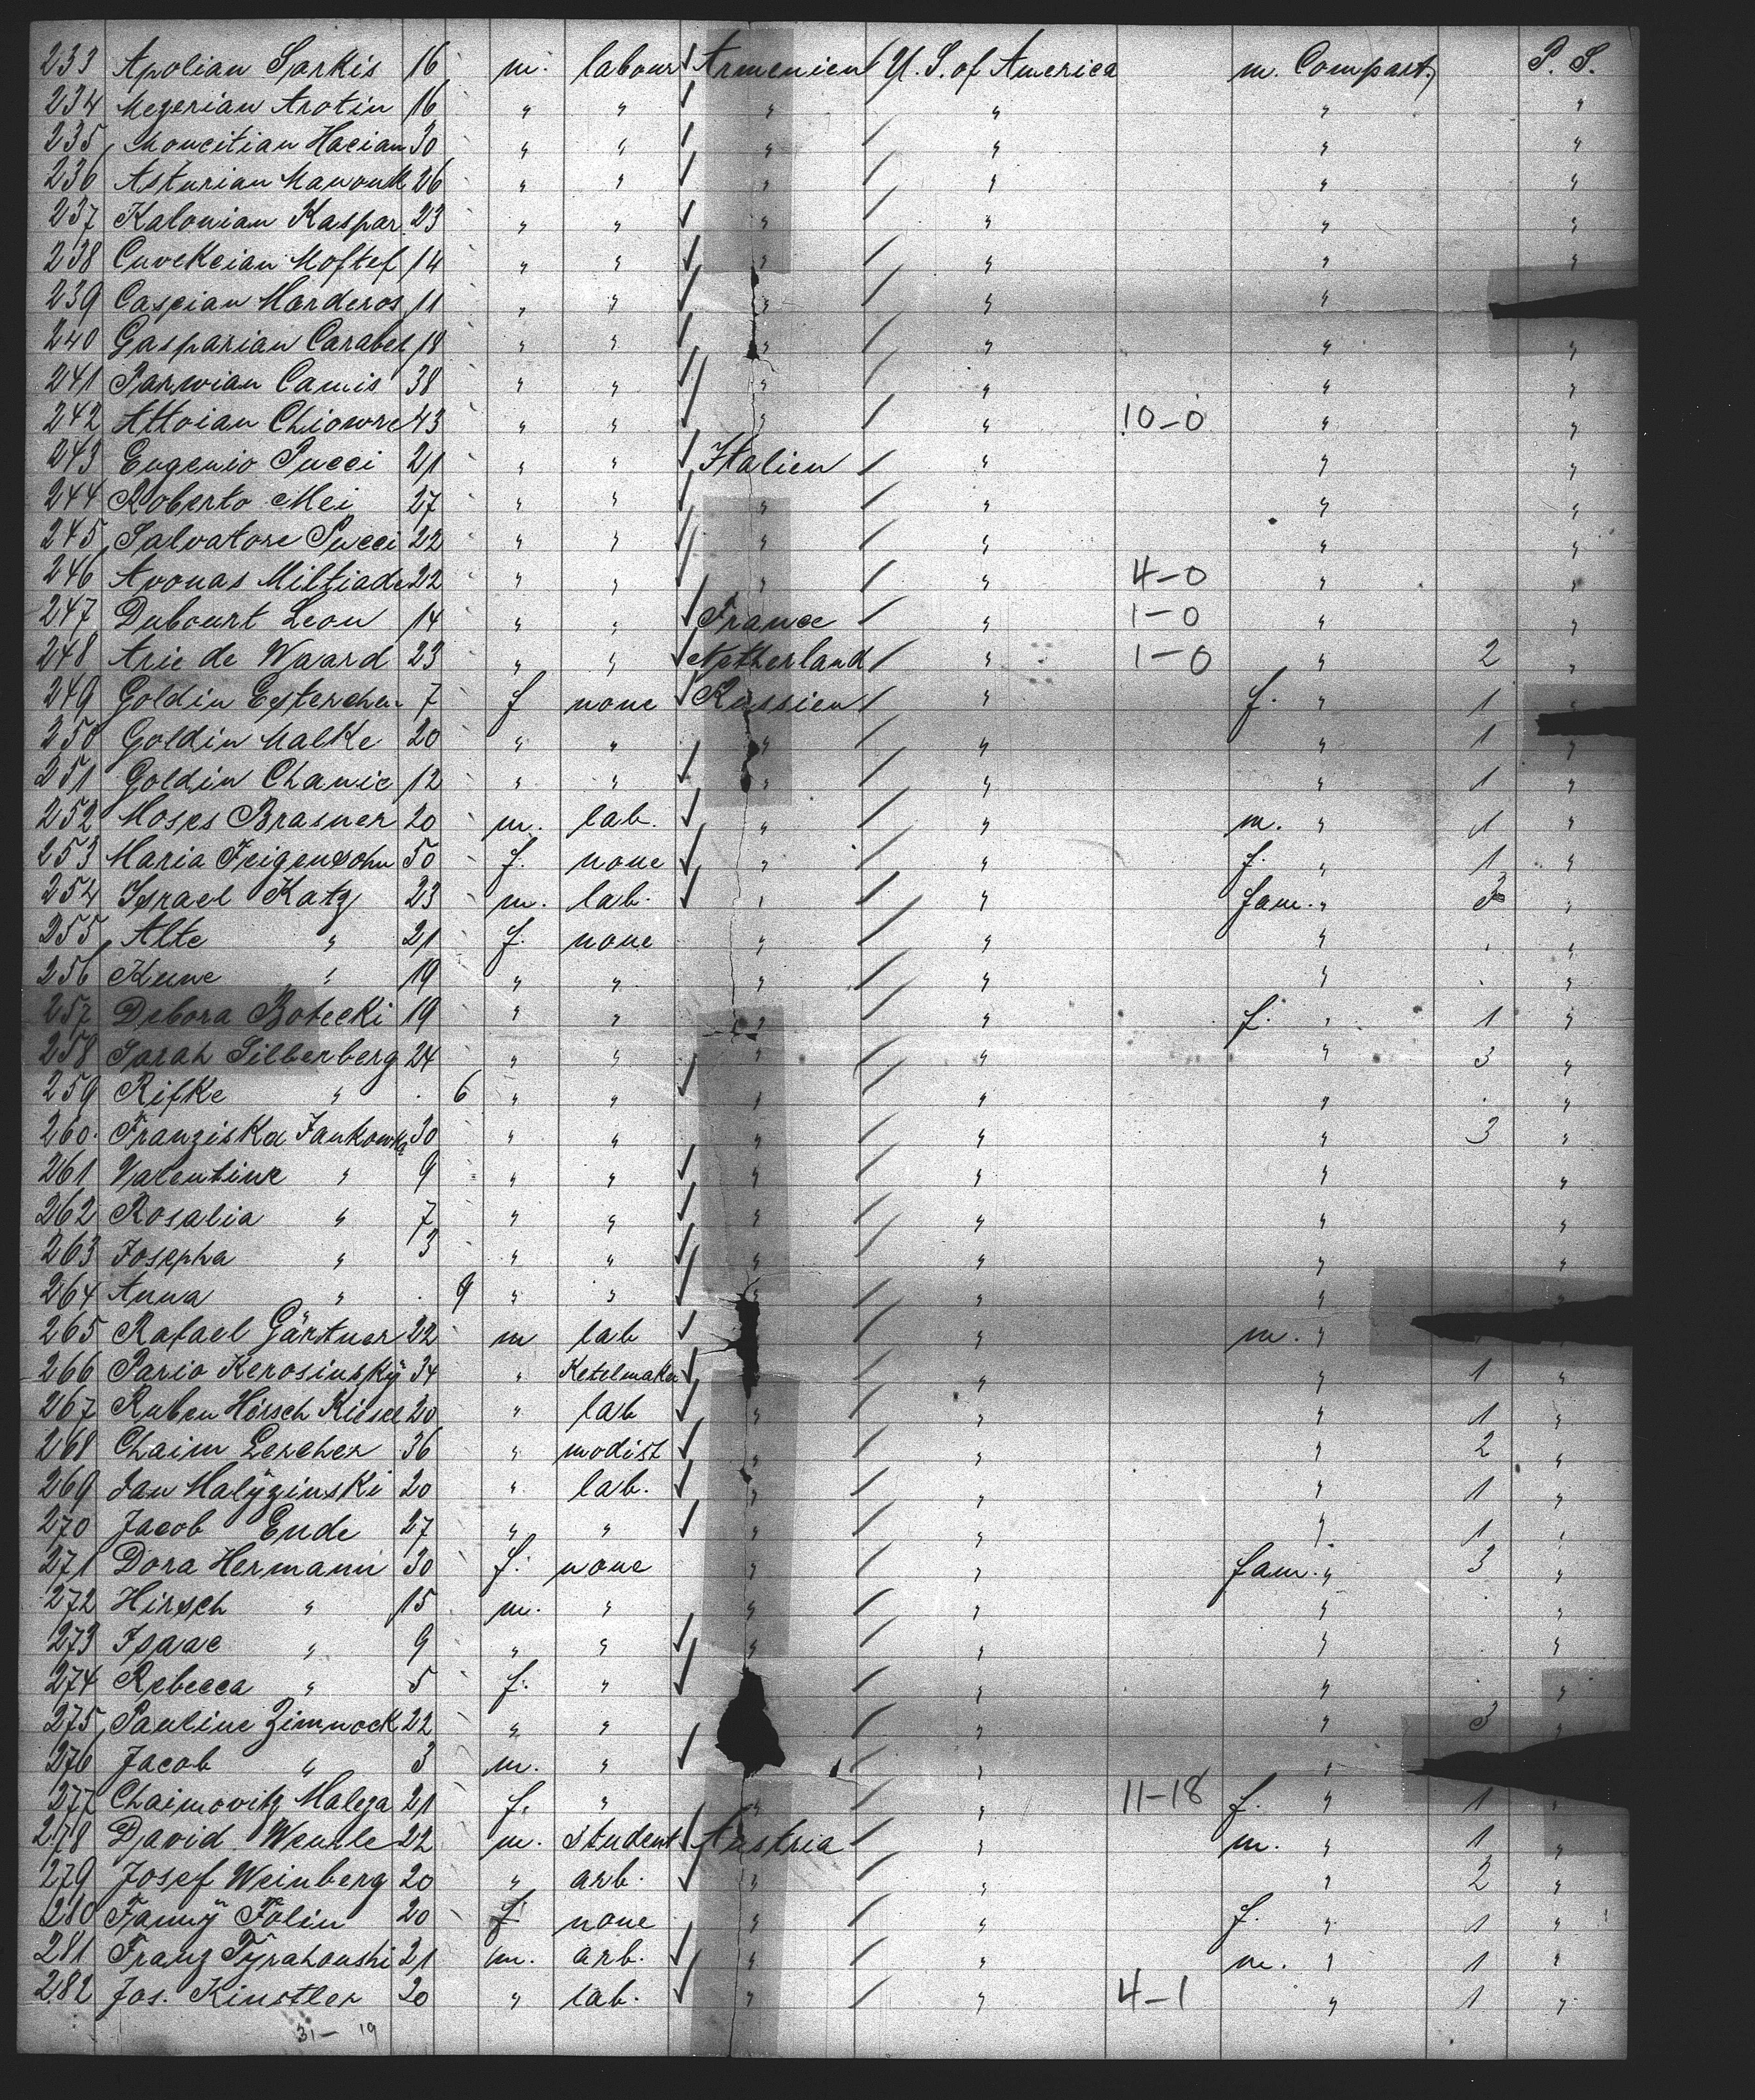 233 Apolian Sarkis 16 m. labour Armenien U. S. of America m. Compart. P. S.
234 Megerian Arotin 16 " " " " " "
235 Moucitian Hacian 30 " " " " " "
236 Asturian Manouk 26 " " " " " "
237 Kalonian Kaspar 23 " " " " " "
238 Cuvekeian Moftef 14 " " " " " "
239 Caspian Marderos 11 " " " " "
240 Gasparian Carabet 18 " " " " " "
241 Parwian Camis 38 " " " " " "
242 Attoian Chiowre 43 " " " " 10-0 " "
243 Eugenio Pucci 21 " " Italien " " "
244 Roberto Mei 27 " " " " " "
245 Salvatore Pucci 22 " " " " " "
246 Avonas Miltiade 22 " " " " 4-0 " "
247 Dubourt Leon 14 " " France " 1-0 " "
248 Arie de Waard 23 " " Netherland " 1-0 " 2 "
249 Goldin Estercha 7 f none Russien " f. " 1 "
250 Goldin Malke 20 " " " " " 1 "
251 Goldin Chanie 12 " " " " " 1 "
252 Moses Brasner 20 m. lab. " " m. " 1 "
253 Maria Feigensohn 50 f. none " " f. " 1 "
254 Israel Katz 23 m. lab. " " fam. " 3 "
255 Alte " 21 f. none " " " "
256 Kune " 19 " " " " " "
257 Debora Botecki 19 " " " " f. " 1 "
258 Sarah Silberberg 24 " " " " " 3 "
259 Rifke " 6 " " " " " "
260 Franziska Jankowska 30 " " " " " 3 "
261 Valentine " 9 " " " " " "
262 Rosalia " 7 " " " " " "
263 Josepha " 3 " " " " " "
264 Anna " 9 " " " " "
265 Rafael Gärtner 22 m lab " m. "
266 Pario Kerosinsky 34 " Ketelmaker " " 1 "
267 Ruben Hirsch Kiesel 20 " lab " " " 1 "
268 Chaim Lercher 36 " modist " " " 2 "
269 Jan Malyzinski 20 " lab. " " " 1 "
270 Jacob Ende 27 " " " " " 1 "
271 Dora Hermann 30 f. none " " fam. " 3 "
272 Hirsch " 15 m. " " " " "
273 Isaac " 9 " " " " " "
274 Rebecca " 5 f. " " " "
275 Pauline Zimnock 22 " " " " 3 "
276 Jacob " 3 m. " " "
277 Chaimovitz Malega 21 f. " " " 11-18 f. " 1
278 David Wenzle 22 m. Student Austria " m. " 1 "
279 Josef Weinberg 20 " arb. " " " 2 "
280 Fanny Folin 20 f none " " f. " 1 "
281 Franz Tyrahouski 21 m. arb. " " m. " 1 "
282 Jos. Kinstler 20 " lab. " " 4-1 " 1 "
31- 19